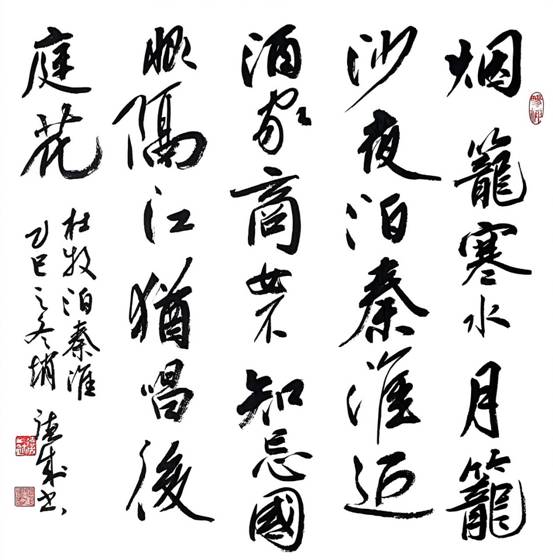 烟籠寒水月籠
沙夜泊秦淮近
酒家商女不知忘國
恨隔江猶唱後
庭花
杜牧泊秦淮
乙巳之冬梢
成书